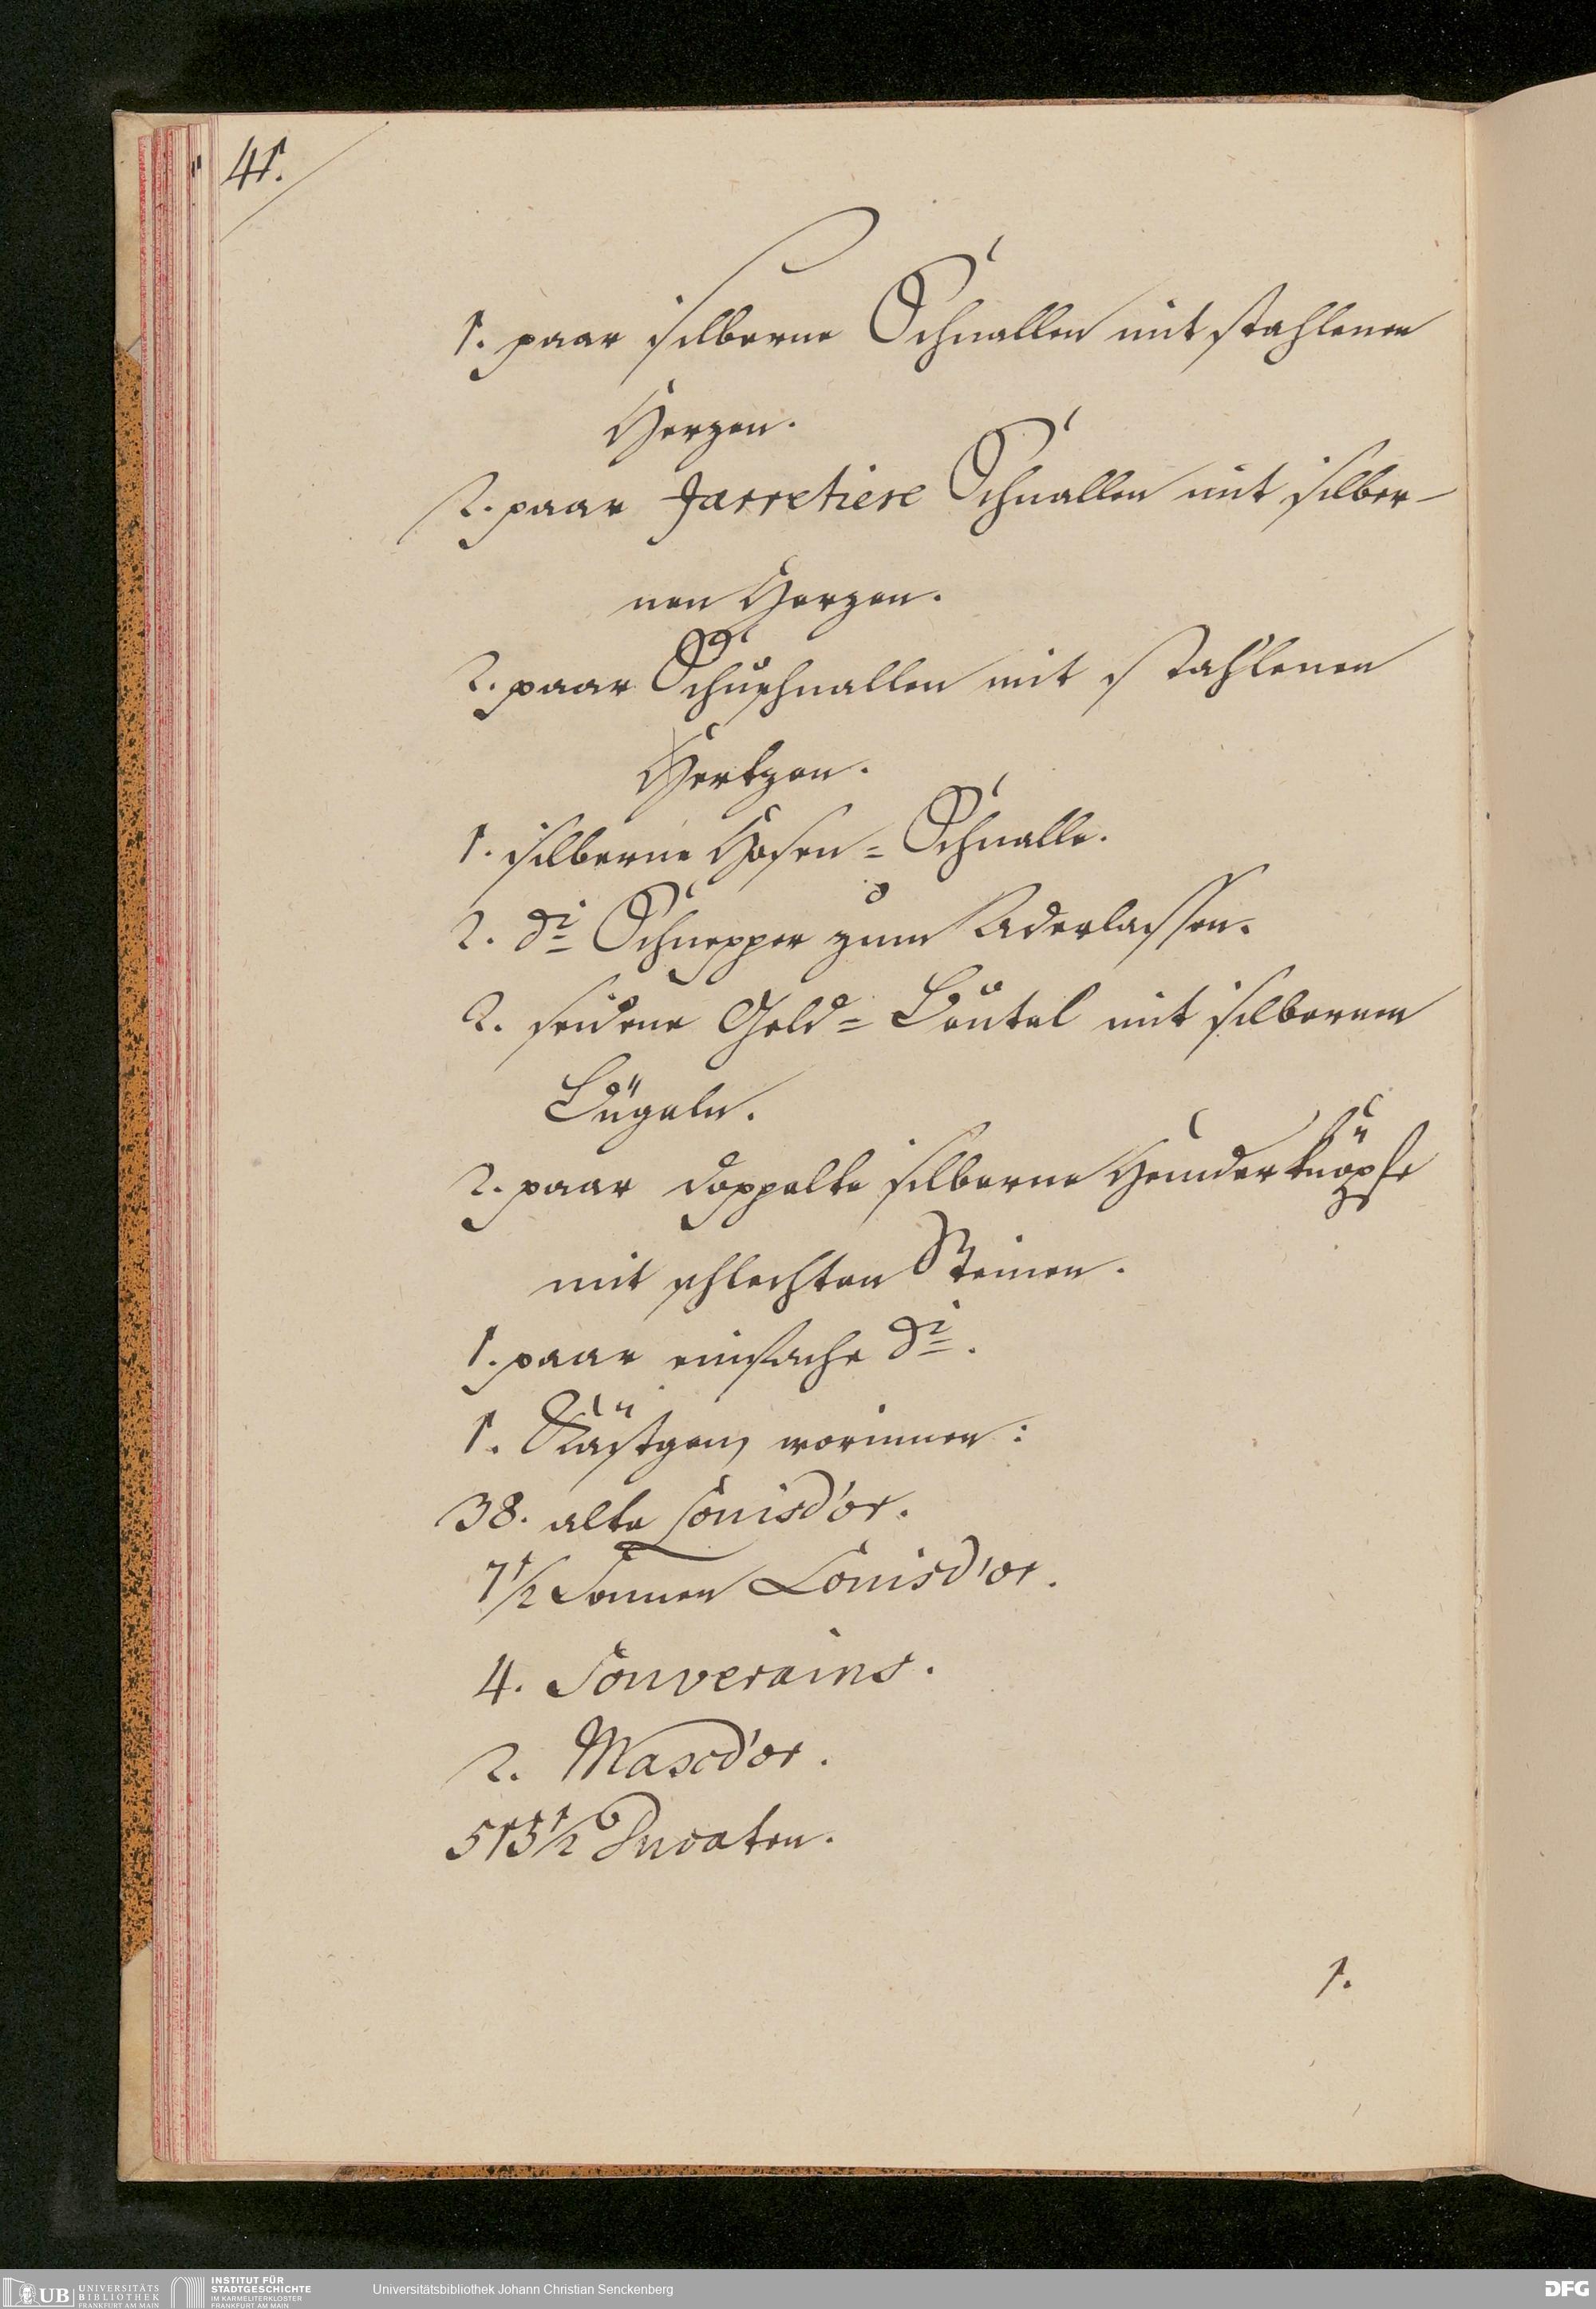 41.
1. paar silberne Schnallen mit stahlenen
Herzen.
2. paar Jarretiere Schnallen mit silber-
nen Herzen.
2. paar Schuschnallen mit stahlenen
Hertzen.
1. silberne Hosen = Schnalle.
2. do Schnepper zum Aderlassen.
2. seidene Geld = Beutel mit silbernen
Bügeln.
2. paar doppelte silberne Hemderknöpfe
mit schlechten Steinen.
1. paar einfache do.
1. Kästgen, worinnen:
38. alte Louisd'or.
7 1/2 Sonnen Louisd'or.
4. Souverains.
2. Maxd'or.
515 1/2 Ducaten.
1.
UB UNIVERSITÄTS
BIBLIOTHEK
FRANKFURT AM MAIN
INSTITUT FÜR
STADTGESCHICHTE
IM KARMELITERKLOSTER
FRANKFURT AM MAIN
Universitätsbibliothek Johann Christian Senckenberg
DFG